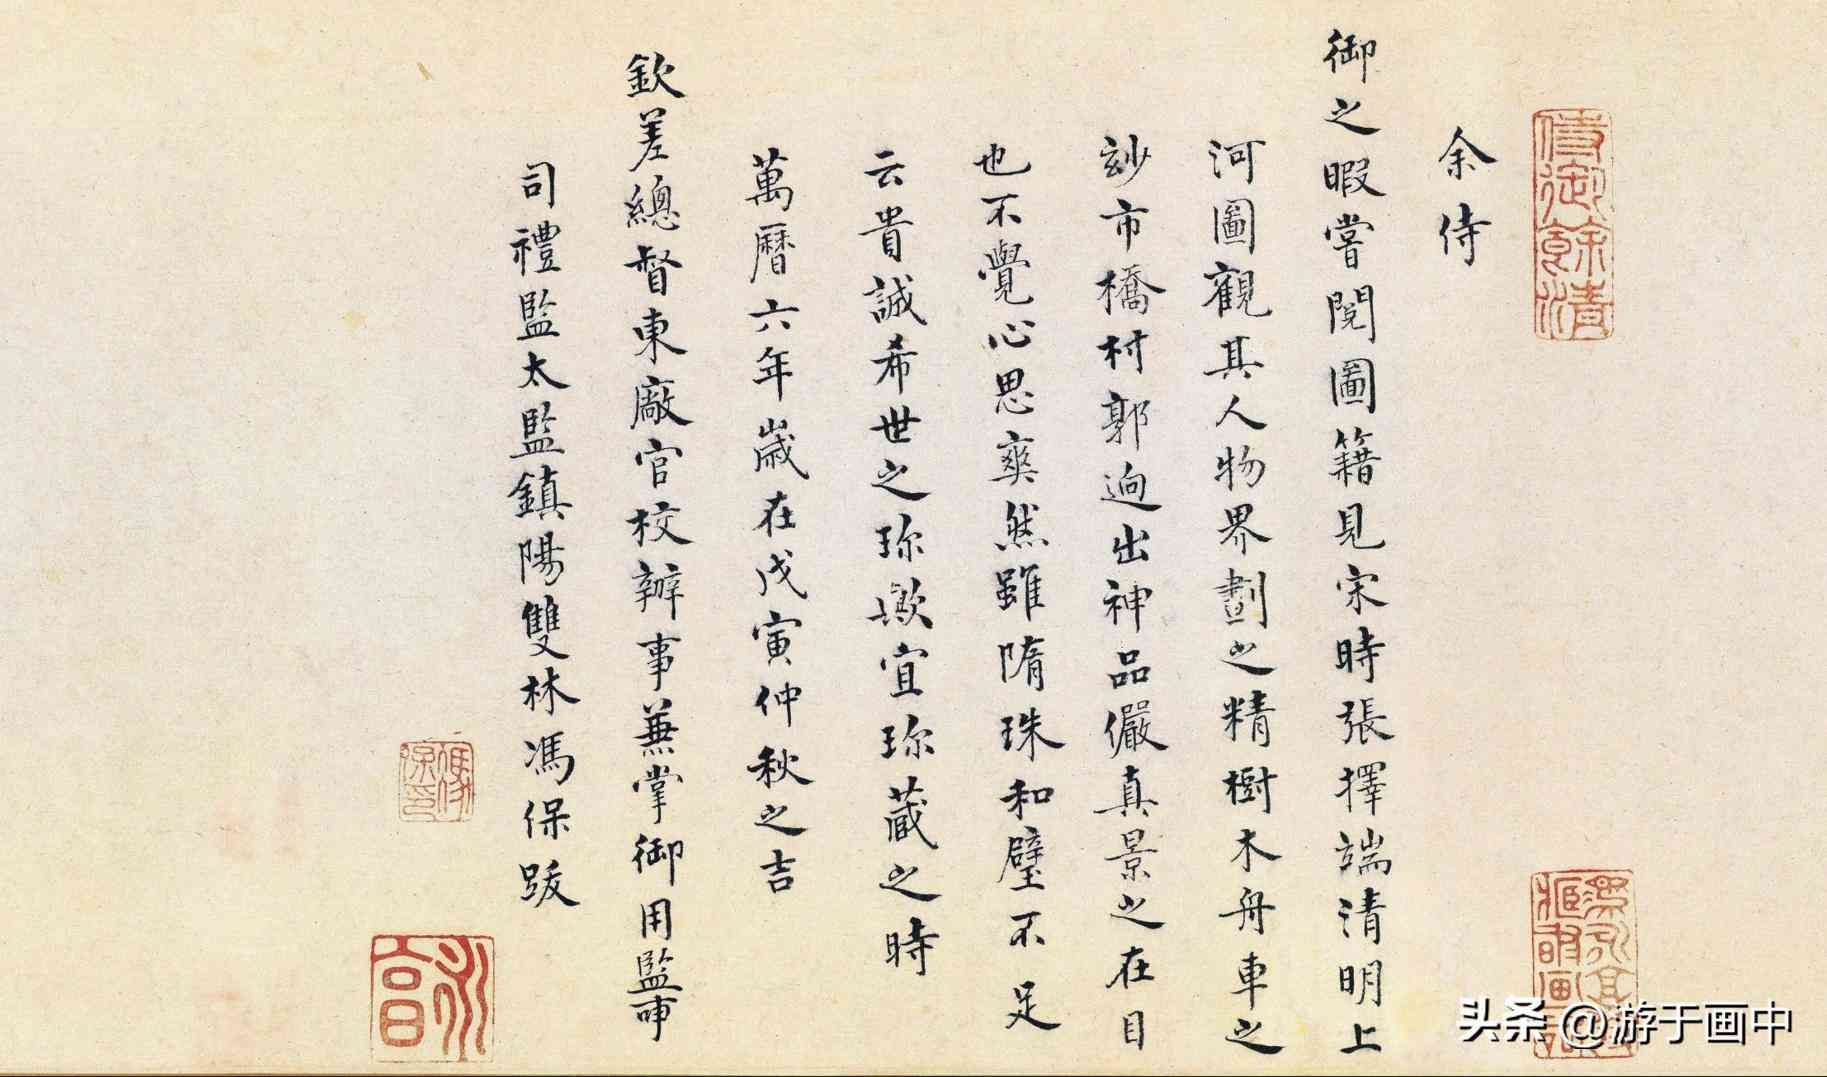 侍御餘清
余侍
御之暇嘗閱圖籍見宋時張擇端清明上
河圖觀其人物界劃之精樹木舟車之
玅市橋村郭逈出神品儼真景之在目
也不覺心思爽然雖隋珠和璧不足
云貴誠希世之珎歟宜珎藏之時
萬曆六年歲在戊寅仲秋之吉
欽差總督東廠官校辦事兼掌御用監事
司禮監太監鎮陽雙林馮保跋
馮保印
头条 @游于画中